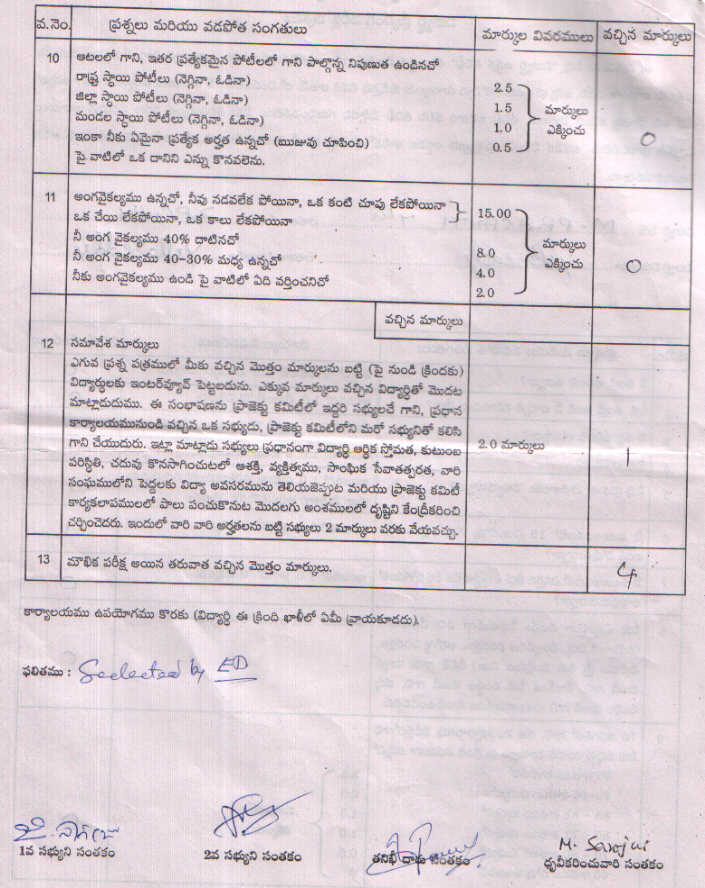 వ.నెం. ప్రశ్నలు మరియు వడపోత సంగతులు మార్కుల వివరములు వచ్చిన మార్కులు
10 ఆటలలో గాని, ఇతర ప్రత్యేకమైన పోటీలలో గాని పాల్గొన్న నిపుణుత ఉండినచో
రాష్ట్ర స్థాయి పోటీలు (నెగ్గినా, ఓడినా) 2.5
జిల్లా స్థాయి పోటీలు (నెగ్గినా, ఓడినా) 1.5 మార్కులు
మండల స్థాయి పోటీలు (నెగ్గినా, ఓడినా) 1.0 ఎక్కించు 0
ఇంకా నీకు ఏమైనా ప్రత్యేక అర్హత ఉన్నచో (ఋజువు చూపించి) 0.5
పై వాటిలో ఒక దానిని ఎన్ను కొనవలెను.
11 అంగవైకల్యము ఉన్నచో, నీవు నడవలేక పోయినా, ఒక కంటి చూపు లేకపోయినా 15.00
ఒక చేయి లేకపోయినా, ఒక కాలు లేకపోయినా
నీ అంగ వైకల్యము 40% దాటినచో 8.0 మార్కులు
నీ అంగ వైకల్యము 40-30% మధ్య ఉన్నచో 4.0 ఎక్కించు 0
నీకు అంగవైకల్యము ఉండి పై వాటిలో ఏది వర్తించనిచో 2.0
వచ్చిన మార్కులు
12 సమావేశ మార్కులు
ఎగువ ప్రశ్న పత్రములో మీకు వచ్చిన మొత్తం మార్కులను బట్టి (పై నుండి క్రిందకు)
విద్యార్థులకు ఇంటర్‌వ్యూవ్ పెట్టబడును. ఎక్కువ మార్కులు వచ్చిన విద్యార్థితో మొదట
మాట్లాడుదుము. ఈ సంభాషణను ప్రాజెక్టు కమిటీలో ఇద్దరి సభ్యులచే గాని, ప్రధాన
కార్యాలయమునుండి వచ్చిన ఒక సభ్యుడు, ప్రాజెక్టు కమిటీలోని మరో సభ్యునితో కలిసి
గాని చేయుదురు. ఇట్లా మాట్లాడు సభ్యులు ప్రధానంగా విద్యార్థి ఆర్థిక స్తోమత, కుటుంబ 2.0 మార్కులు
పరిస్థితి, చదువు కొనసాగించుటలో ఆశక్తి, వ్యక్తిత్వము, సాంఘిక సేవాతత్పరత, వారి 1
సంఘములోని పెద్దలకు విద్యా అవసరమును తెలియజెప్పుట మరియు ప్రాజెక్టు కమిటీ
కార్యకలాపములలో పాలు పంచుకొనుట మొదలగు అంశములలో దృష్టిని కేంద్రీకరించి
చర్చించెదరు. ఇందులో వారి వారి అర్హతలను బట్టి సభ్యులు 2 మార్కులు వరకు వేయవచ్చు.
13 మౌఖిక పరీక్ష అయిన తరువాత వచ్చిన మొత్తం మార్కులు. 4
కార్యాలయము ఉపయోగము కొరకు (విద్యార్థి ఈ క్రింది ఖాళీలో ఏమీ వ్రాయకూడదు).
ఫలితము : Seelected by ED
M. Sarojini
1వ సభ్యుని సంతకం 2వ సభ్యుని సంతకం తనిఖీ దారు సంతకం ధృవీకరించువారి సంతకం